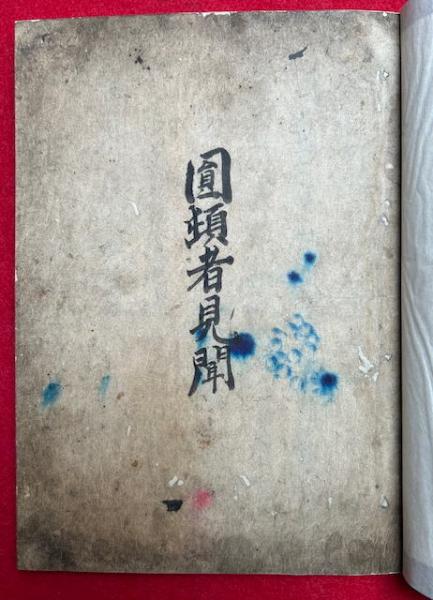 圓頓者見聞